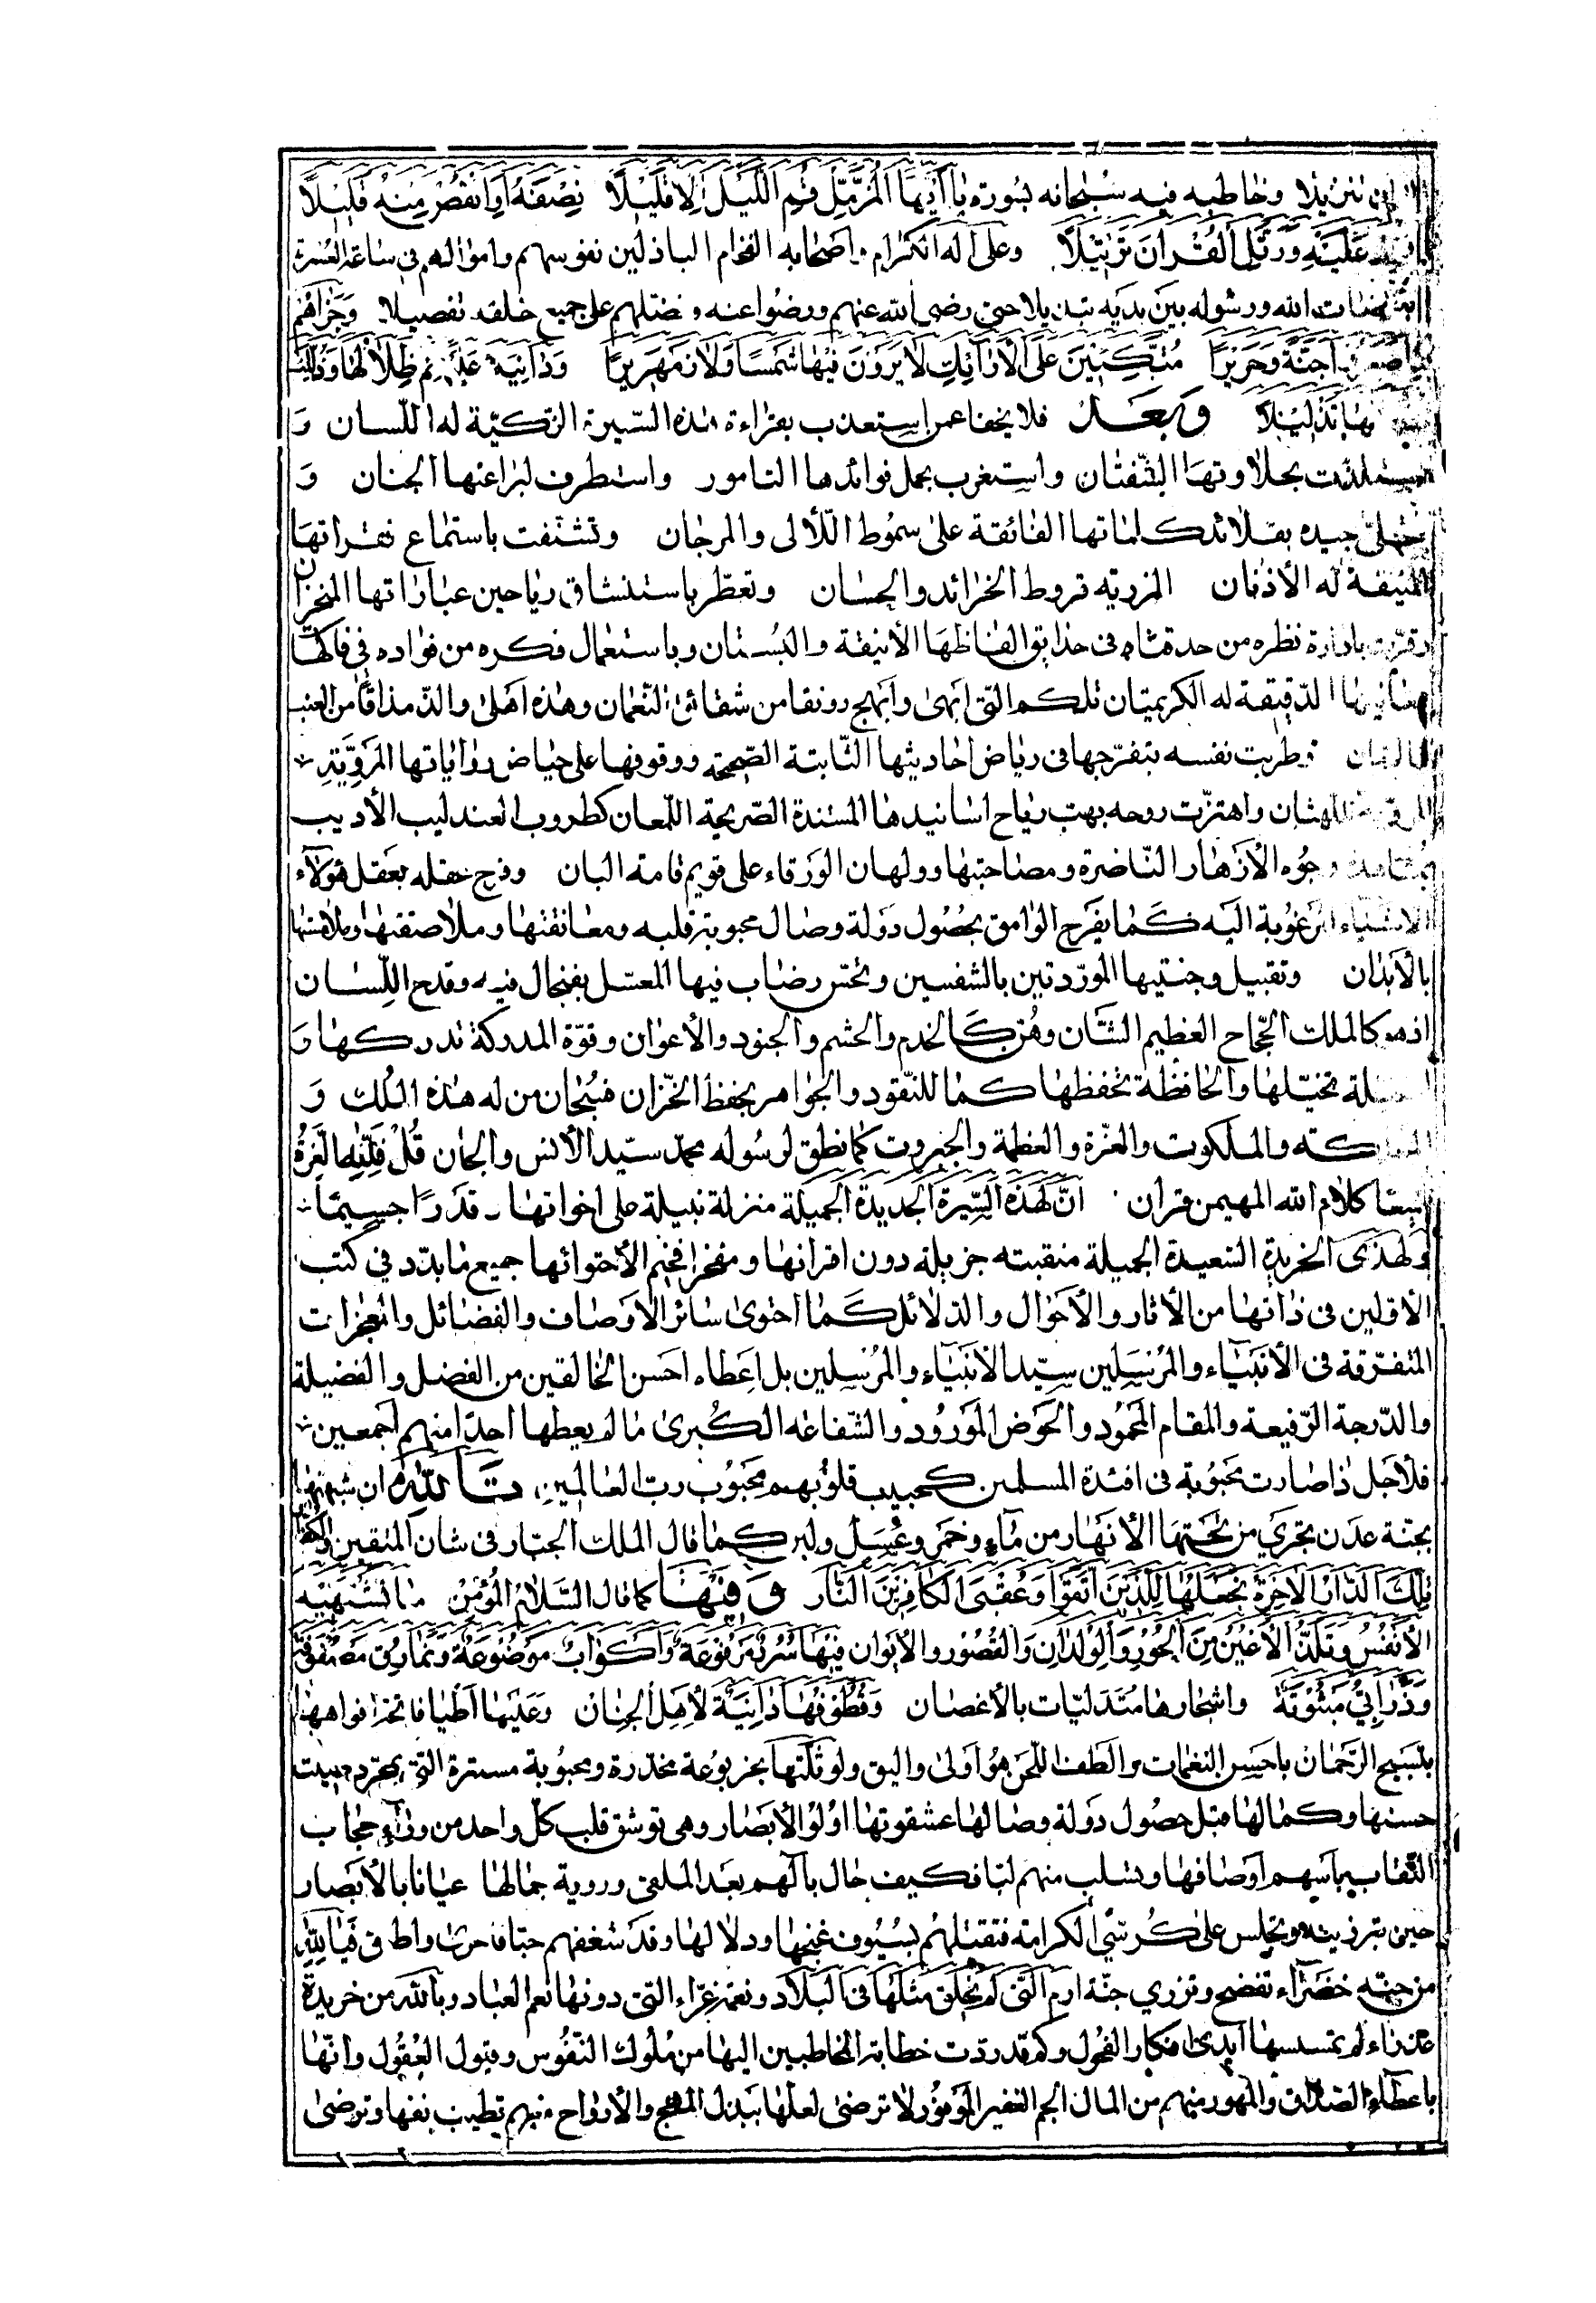 تنزيلا وخاطبه فيه سبحانه بسورة يا أَيُّهَا الْمُزَّمِّلُ قُمِ اللَّيْلَ إِلَّا قَلِيْلًا نِصْفَهُ أَوِ انْقُصْ مِنْهُ قَلِيْلًا
عَلَيْهِ وَرَتِّلِ الْقُرْآنَ تَرْتِيْلًا وعلى آله الكرام واصحابه الفخام الباذلين نفوسهم واموالهم في ساعة العسرة
الله ورسوله بين يديه تبديلا حتى رضي الله عنهم ورضوا عنه وفضلهم على جميع خلقه تفصيلا وَجَزَاهُمْ
جَنَّةً وَحَرِيْرًا مُتَّكِئِيْنَ عَلَى الْأَرَائِكِ لَا يَرَوْنَ فِيْهَا شَمْسًا وَلَا زَمْهَرِيْرًا وَدَانِيَةً عَلَيْهِمْ ظِلَالُهَا وَذُلِّلَتْ
تَذْلِيْلًا وَبَعْد فلا يخفا عمن استعذب بقراءة هذه السيرة الزكيّة له اللسان وَ
بحلاوتها الشّفتان واستغرب بجمل فوائدها التامور واستطرف لبراعتها الجنان وَ
جيده بقلائد كلماتها الفائقة على سموط اللآلى والمرجان وتشنّفت باستماع فقراتها
المنيفة له الأذنان المزرية قروط الخرائد والحسان وتعطّر باستنشاق رياحين عباراتها المنخران
وقرّت بادارة نظره من حدقتاه في حدايق الفاظها الأنيقة والبستان وباستعمال فكره من فواده في فاكهة
الدّقيقة له الكريمتان تلكم التي ابهى وابهج رونقا من شقائق النّعمان وهذه احلى والذّ مذاقًا من العنب
وطربت نفسه بتفرّجها في رياض احاديثها الثّابتة الصّحيحة ووقوفها على حياض رواياتها المرويّة
واهتزّت روحه بهب رياح اسانيدها المسندة الصّريحة اللّمعان كطروب العندليب الأديب
وجوه الأزهار النّاضرة ومصاحبتها وولهان الورقاء على قويم قامة البان وفرح عقله بعقل هؤلاء
الاشياء المرغوبة اليه كما يفرح الوامق بحصول دولة وصال محبوبة قلبه ومعانقتها وملاصقتها وملامستها
بالأبدان وتقبيل وجنتيها المورّدتين بالشفسين وتحسّى رضاب فيها المعسّل بفنجال فيه وقدح اللسان
اذ هو كالملك الجحجاح العظيم الشّان وهنّ كالخدم والحشم والجنود والأعوان وقوّة المدركة تدركها وَ
تخيّلها والحافظة تحفظها كما للنّقود والجواهر يحفظ الخزّان فسبحان من له هذه الملك وَ
والملكوت والعزّة والعظمة والجبروت كما نطق لرسوله محمد سيّد الأنس والجان قُلْ فَلِلّٰهِ الْعِزَّةُ
كلام الله المهيمن قرآن انّ لهذه السّيرة الجديدة الجميلة منزلة نبيلة على اخواتها قدرًا جسيمًا
ولهذى الخريدة السّعيدة الجميلة منقبته جزيلة دون اقرانها ومفخرا فخيم الأحتوائها جميع ما بدّد في كتب
الأوّلين في ذاتها من الأثار والأحوال والدّلائل كما احتوى سائر الأوصاف والفضائل والمعجزات
المتفرّقة في الأنبياء والمرسلين سيّد الأنبياء والمرسلين بل اعطاه احسن الخالقين من الفضل والفضيلة
والدّرجة الرّفيعة والمقام المحمود والحوض المورود والشّفاعة الكبرى ما لم يعطها احدًا منهم اجمعين
فلأجل ذا صارت محبوبة في افئدة المسلمين كحبيب قلوبهم محبوب ربّ العالمين تَاللّٰهِ ان شبهتها
بجنّة عدن تجري من تحتها الأنهار من ماء وخمر وعسل ولبن كما قال الملك الجبّار في شان المتقين
تِلْكَ الدَّارُ الْآخِرَةُ نَجْعَلُهَا لِلَّذِيْنَ اتَّقَوْا وَعُقْبَى الْكَافِرِيْنَ النَّارُ وَفِيْهَا كما قال السّلام المؤمن مَا تَشْتَهِيْهِ
الْأَنْفُسُ وَتَلَذُّ الْأَعْيُنُ مِنَ الْحُوْرِ وَالْوِلْدَانِ وَالْقُصُوْرِ وَالْأَيْوَانِ فِيْهَا سُرُرٌ مَرْفُوْعَةٌ وَأَكْوَابٌ مَوْضُوْعَةٌ وَنَمَارِقُ مَصْفُوْفَةٌ
وَزَرَابِيُّ مَبْثُوْثَةٌ واشجارها متدلّيات بالأغصان وقطوفها دانية لأهل الجنان وعليها اطيار فاتحة افواهها
بتسبيح الرّحمان باحسن النغمات والطف اللّحن هو اولى واليق ولو مثّلتها بخربوعة مخدّرة ومحبوبة مستترة التي بمجرّد صيت
حسنها وكمالها قبل حصول دولة وصالها عشقوتها اولوا الأبصار وهي توشق قلب كلّ واحد من وراء حجاب
النّقاب باسهم اوصافها وتسلب منهم لبّا فكيف حال بآلهم بعد الملقى وروية جمالها عيانا بالأبصار
حين تبرز وتجلس على كرسيّ الكرامة فتقتلهم بسيوف غنجها ودلالها وقد شغفهم حبّا فيا للّه
من جنّة خضراء تفضح وتزري جنّة ارم التي لم يخلق مثلها في البلاد ونعمة غرّاء التي دونها نعم العباد ويا لك من خريدة
عذراء لم تمسسها ايدى افكار الفحول وكم قد ردّت خطابة المخاطبين اليها من ملوك النّفوس وقبول العقول وانّها
باعطاء الصّداق والمهور منهم من المال الجم الغفير الموفور لا ترضى لعلّها ببذل المهج والأرواح منهم تطيب نفسها وترضى